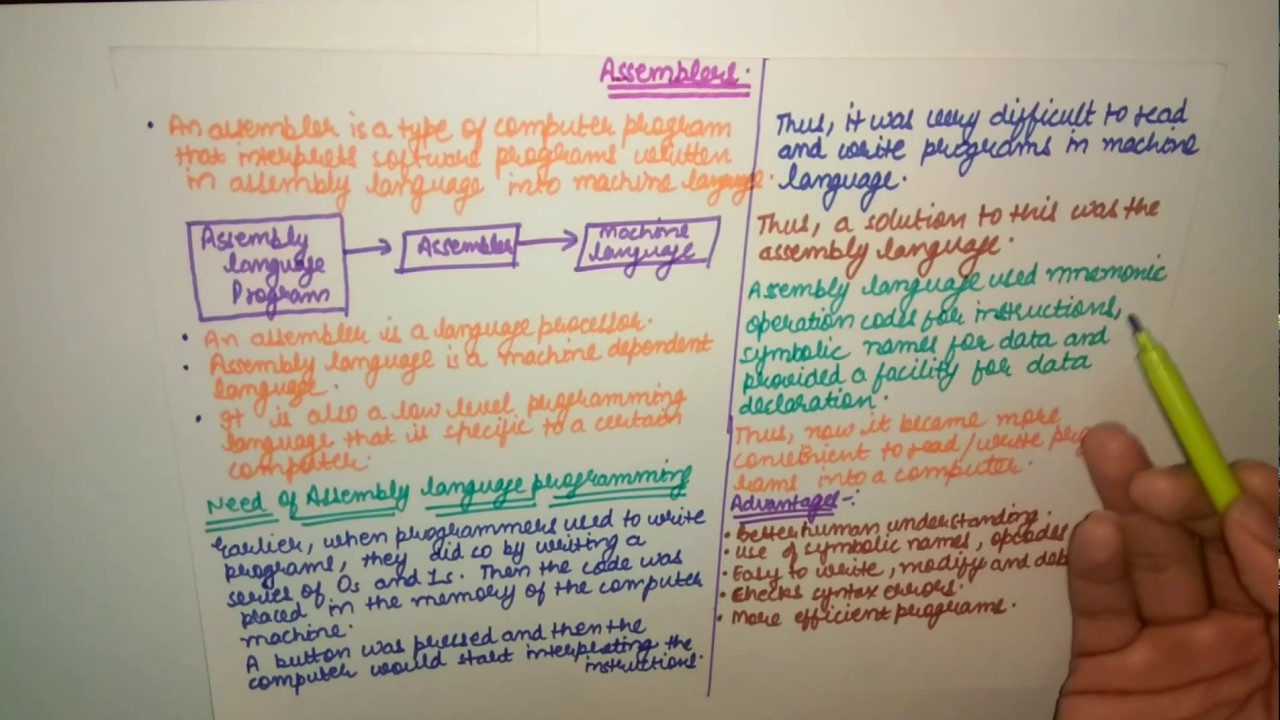 Assemblers.
• An assembler is a type of computer program
that interprets software programs written
in assembly language into machine language.
Assembly
language
Program
Assembler
Machine
language
• An assembler is a language processor.
• Assembly language is a machine dependent
language.
• It is also a low level programming
language that is specific to a certain
computer.
Need of Assembly language programming
Earlier, when programmers used to write
programs, they did so by writing a
series of 0s and 1s. Then the code was
placed in the memory of the computer
machine.
A button was pressed and then the
computer would start interpreting the
instructions.
Thus, it was very difficult to read
and write programs in machine
language.
Thus, a solution to this was the
assembly language.
Assembly language used mnemonic
operation codes for instructions,
symbolic names for data and
provided a facility for data
declaration.
Thus, now it became more
convenient to read/write
rams into a computer.
Advantages -:
• Better human understanding.
• Use of symbolic names, opcodes
• Easy to write, modify and
• Checks syntax errors.
• More efficient programs.